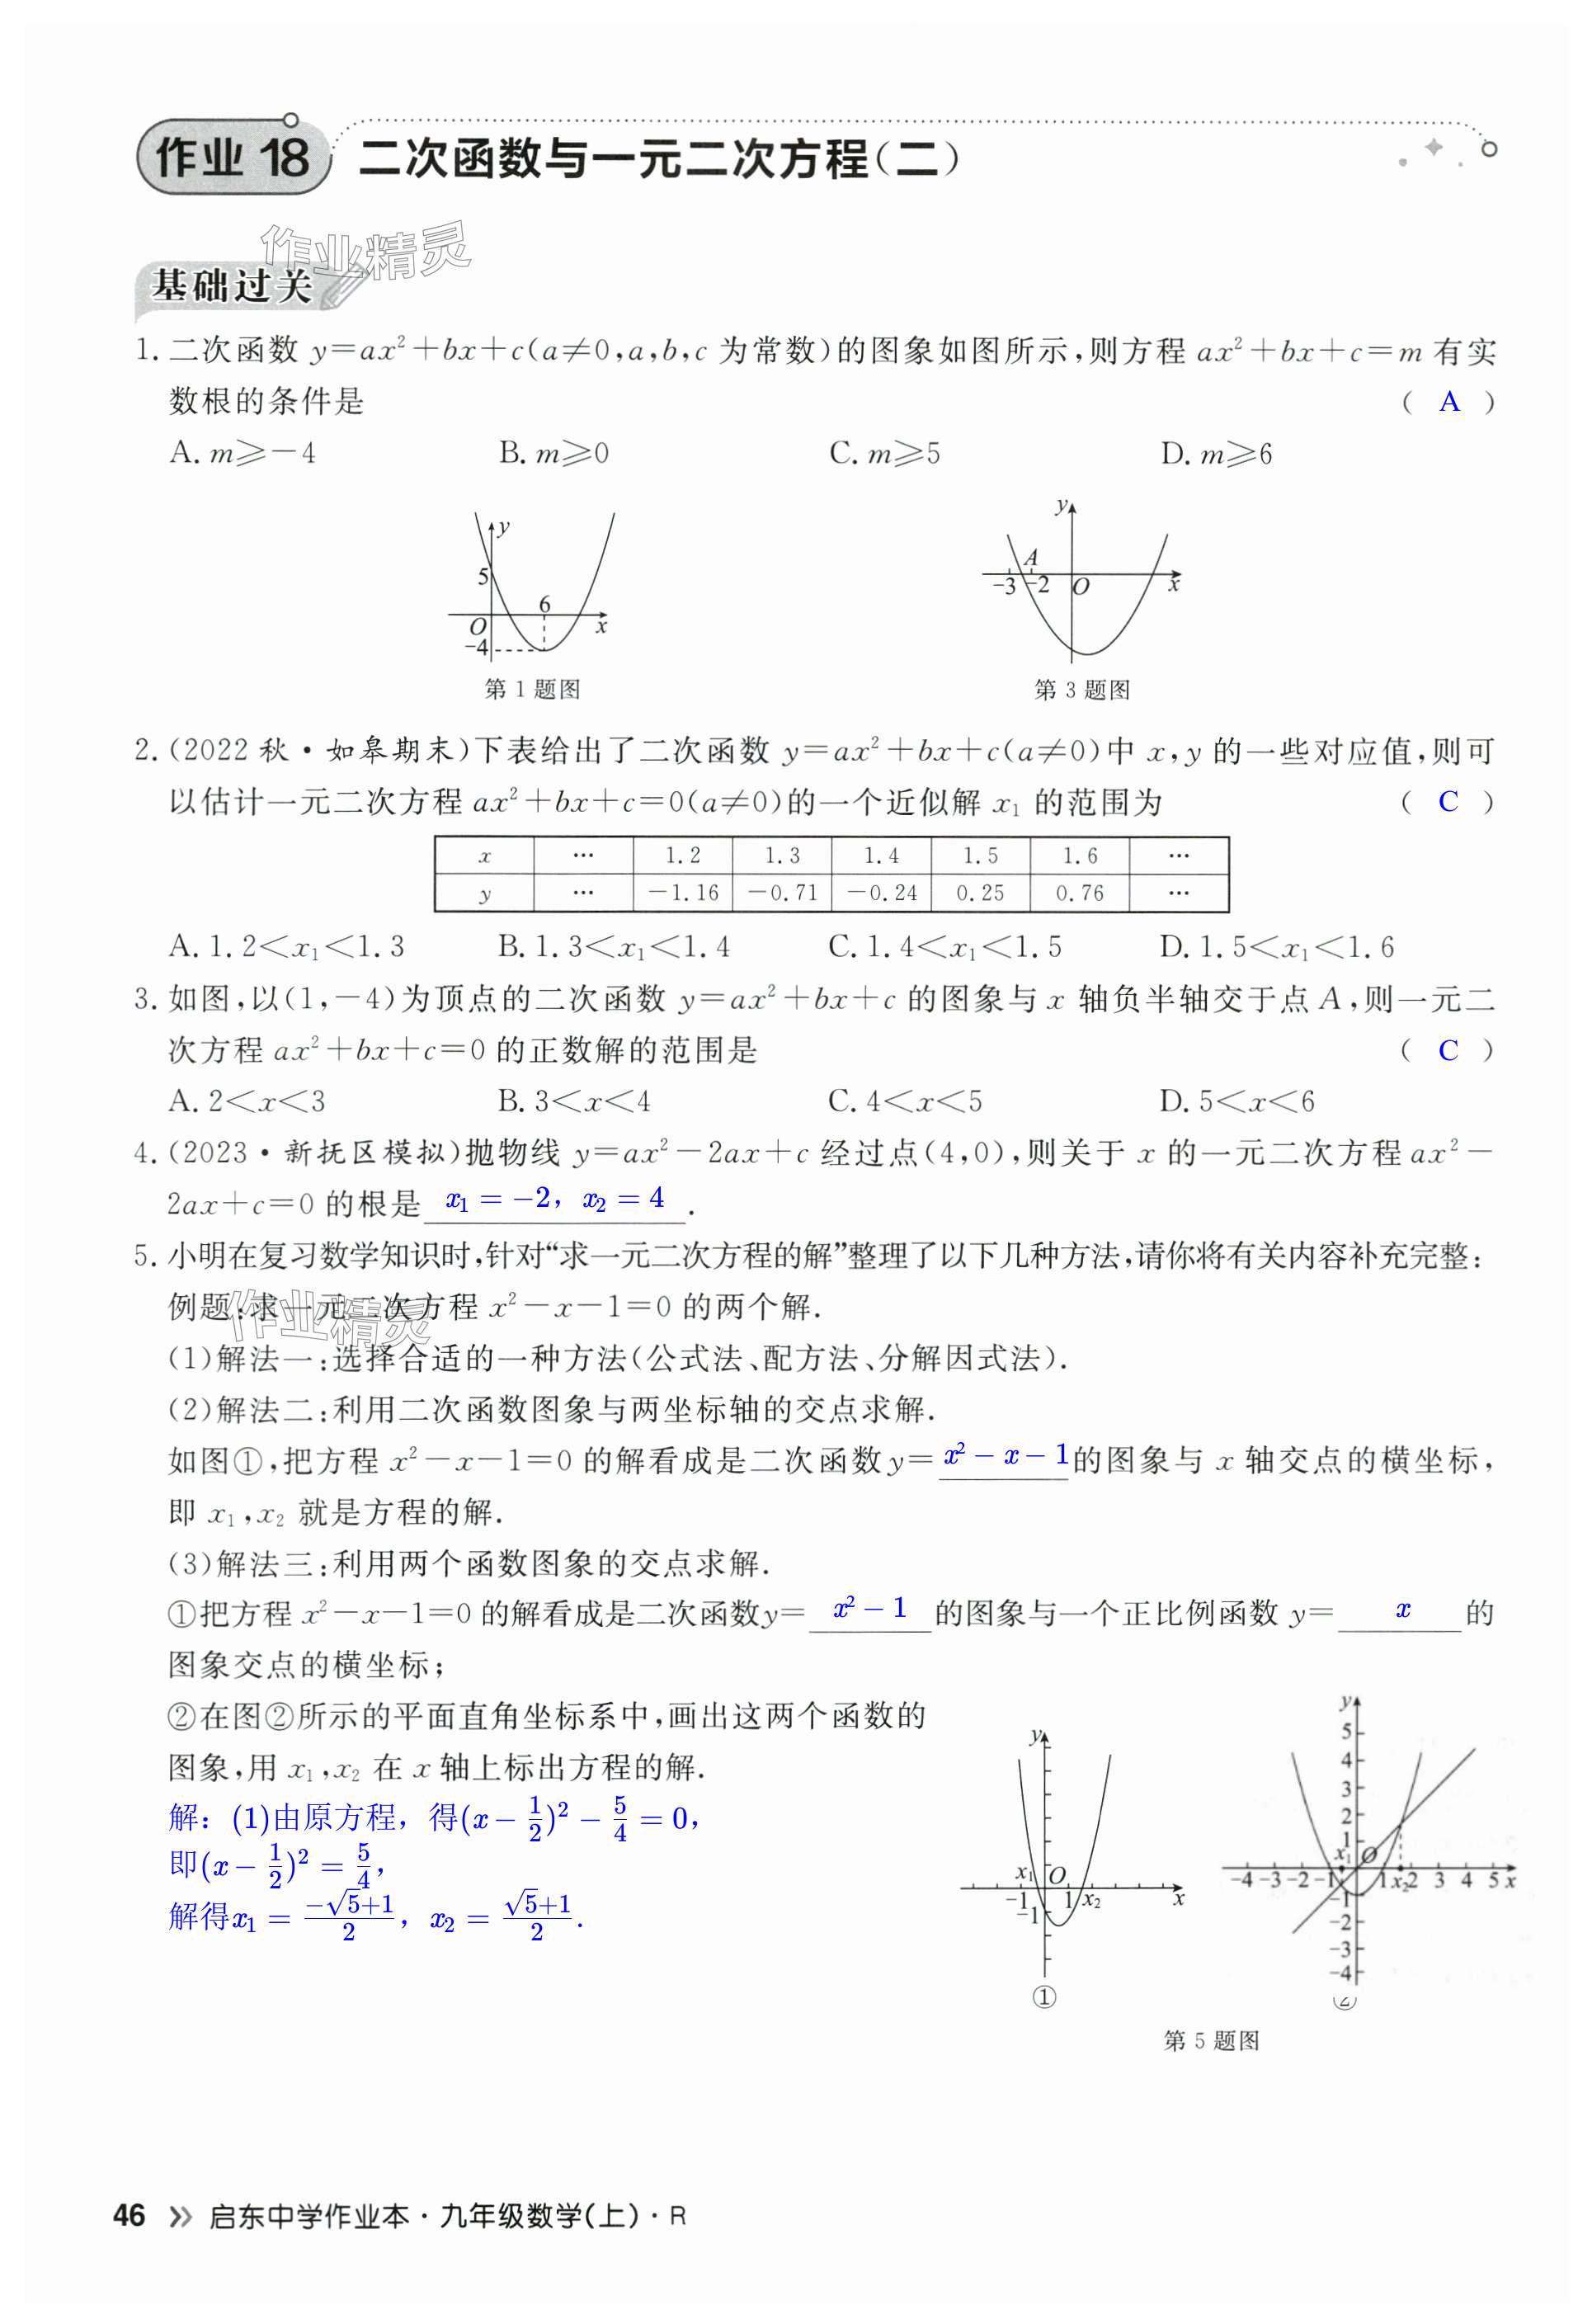 作业 18 二次函数与一元二次方程(二)
作业精灵
基础过关
1. 二次函数 y=ax²+bx+c(a≠0,a,b,c 为常数)的图象如图所示,则方程 ax²+bx+c=m 有实
数根的条件是 ( A )
A. m≥-4 B. m≥0 C. m≥5 D. m≥6
y 5 6 O x -4
第 1 题图
y A -3 -2 O x
第 3 题图
2. (2022 秋·如皋期末)下表给出了二次函数 y=ax²+bx+c(a≠0)中 x,y 的一些对应值,则可
以估计一元二次方程 ax²+bx+c=0(a≠0)的一个近似解 x₁ 的范围为 ( C )
x … 1.2 1.3 1.4 1.5 1.6 …
y … -1.16 -0.71 -0.24 0.25 0.76 …
A. 1.2<x₁<1.3 B. 1.3<x₁<1.4 C. 1.4<x₁<1.5 D. 1.5<x₁<1.6
3. 如图,以(1,-4)为顶点的二次函数 y=ax²+bx+c 的图象与 x 轴负半轴交于点 A,则一元二
次方程 ax²+bx+c=0 的正数解的范围是 ( C )
A. 2<x<3 B. 3<x<4 C. 4<x<5 D. 5<x<6
4. (2023·新抚区模拟)抛物线 y=ax²-2ax+c 经过点(4,0),则关于 x 的一元二次方程 ax²-
2ax+c=0 的根是 x₁=-2,x₂=4 .
5. 小明在复习数学知识时,针对“求一元二次方程的解”整理了以下几种方法,请你将有关内容补充完整:
例题:求一元二次方程 x²-x-1=0 的两个解.
作业精灵
(1)解法一:选择合适的一种方法(公式法、配方法、分解因式法).
(2)解法二:利用二次函数图象与两坐标轴的交点求解.
如图①,把方程 x²-x-1=0 的解看成是二次函数y= x²-x-1 的图象与 x 轴交点的横坐标,
即 x₁,x₂ 就是方程的解.
(3)解法三:利用两个函数图象的交点求解.
①把方程 x²-x-1=0 的解看成是二次函数y= x²-1 的图象与一个正比例函数 y= x 的
图象交点的横坐标;
②在图②所示的平面直角坐标系中,画出这两个函数的
图象,用 x₁,x₂ 在 x 轴上标出方程的解.
解:(1)由原方程,得(x-1/2)²-5/4=0,
即(x-1/2)²=5/4,
解得x₁=(-√5+1)/2,x₂=(√5+1)/2.
y x₁ O -1 1 x₂ x -1
①
y 5 4 3 2 1 x₁ O -4 -3 -2 -1 1 x₂ 2 3 4 5 x -1 -2 -3 -4
②
第 5 题图
46 》 启东中学作业本·九年级数学(上)·R